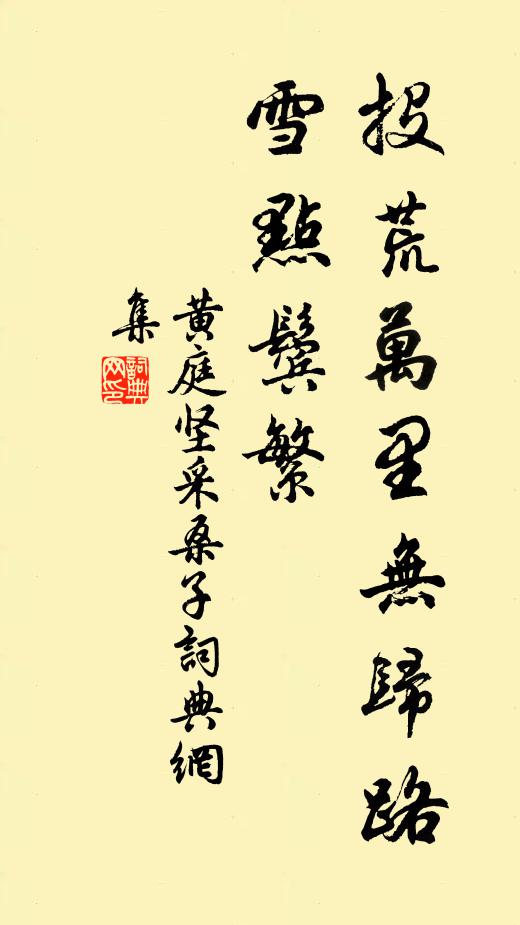 投荒萬里無歸路
雪點鬢繁
黄庭坚采桑子詞典網
集
詞典網印